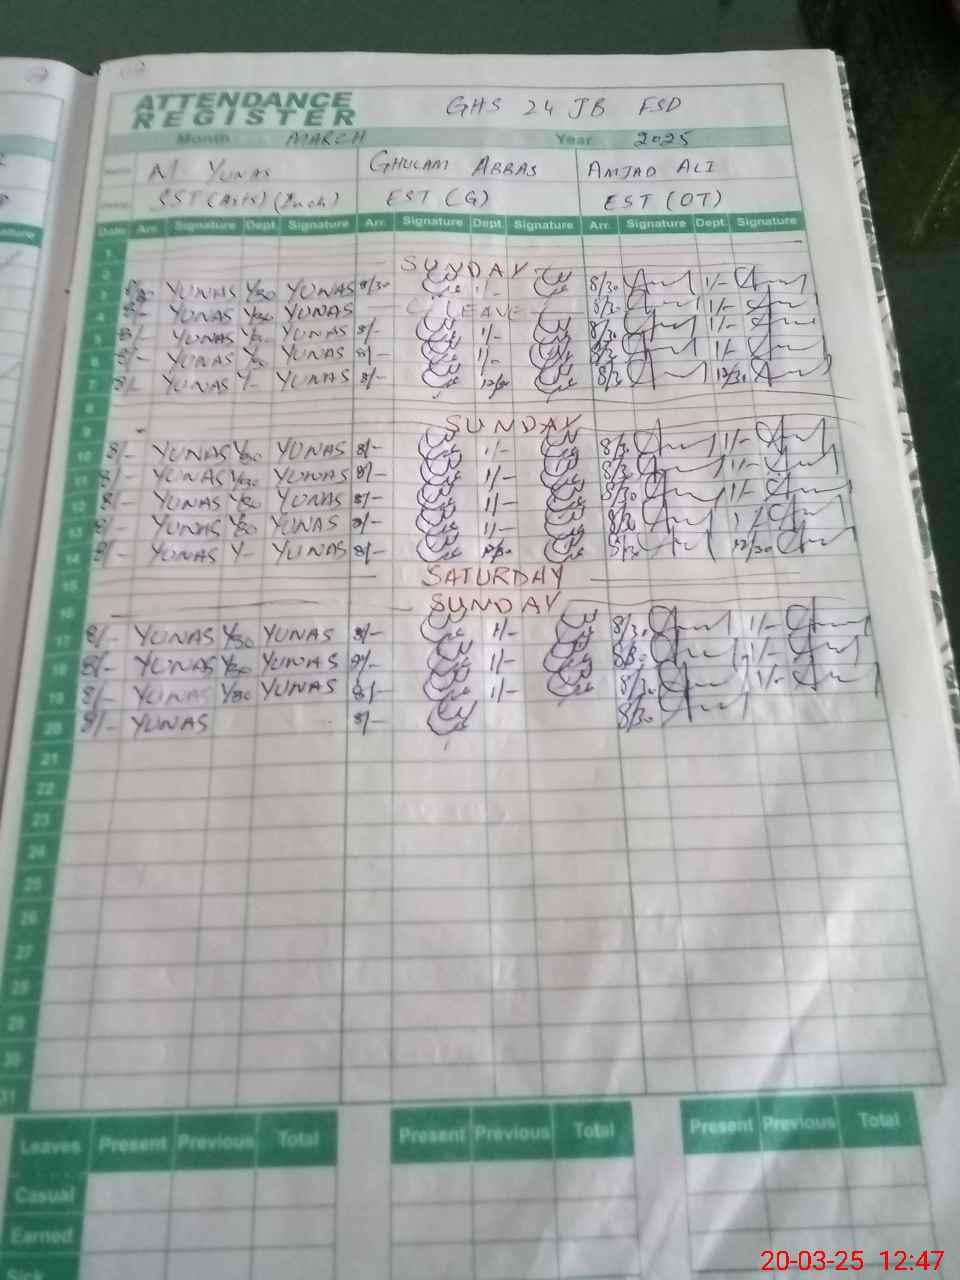 ATTENDANCE REGISTER GHS 24 JB FSD
Month MARCH Year 2025
M YUNAS GHULAM ABBAS AMJAD ALI
EST (G) EST (OT)
Date Arr. Signature Dept. Signature Arr. Signature Dept. Signature Arr. Signature Dept. Signature
1
2 SUNDAY
3 YUNAS 1/30 YUNAS 8/30 1/- 8/30 1/-
4 8/- YUNAS 1/30 YUNAS C. LEAVE 8/30 1/-
5 8/- YUNAS YUNAS 8/- 1/- 8/30 1/-
6 8/- YUNAS YUNAS 8/- 1/- 1/-
7 8/- YUNAS 1/- YUNAS 8/- 12/30 8/30 12/30
8
9 SUNDAY
10 8/- YUNAS 1/30 YUNAS 8/- 1/- 8/30 1/-
11 8/- YUNAS 1/30 YUNAS 8/- 1/- 8/30 1/-
12 8/- YUNAS 1/30 YUNAS 8/- 1/- 8/30 1/-
13 8/- YUNAS 1/30 YUNAS 8/- 1/- 8/30 1/-
14 8/- YUNAS 1/- YUNAS 8/- 12/30 8/30 12/30
15 SATURDAY
16 SUNDAY
17 8/- YUNAS 1/30 YUNAS 8/- 1/- 8/30 1/-
18 8/- YUNAS 1/30 YUNAS 8/- 1/- 8/30 1/-
19 8/- YUNAS 1/30 YUNAS 8/- 1/- 8/30 1/-
20 8/- YUNAS 8/- 8/30
21
22
23
24
25
26
27
28
29
30
31
Leaves Present Previous Total Present Previous Total Present Previous Total
Casual
Earned
Sick
20-03-25 12:47